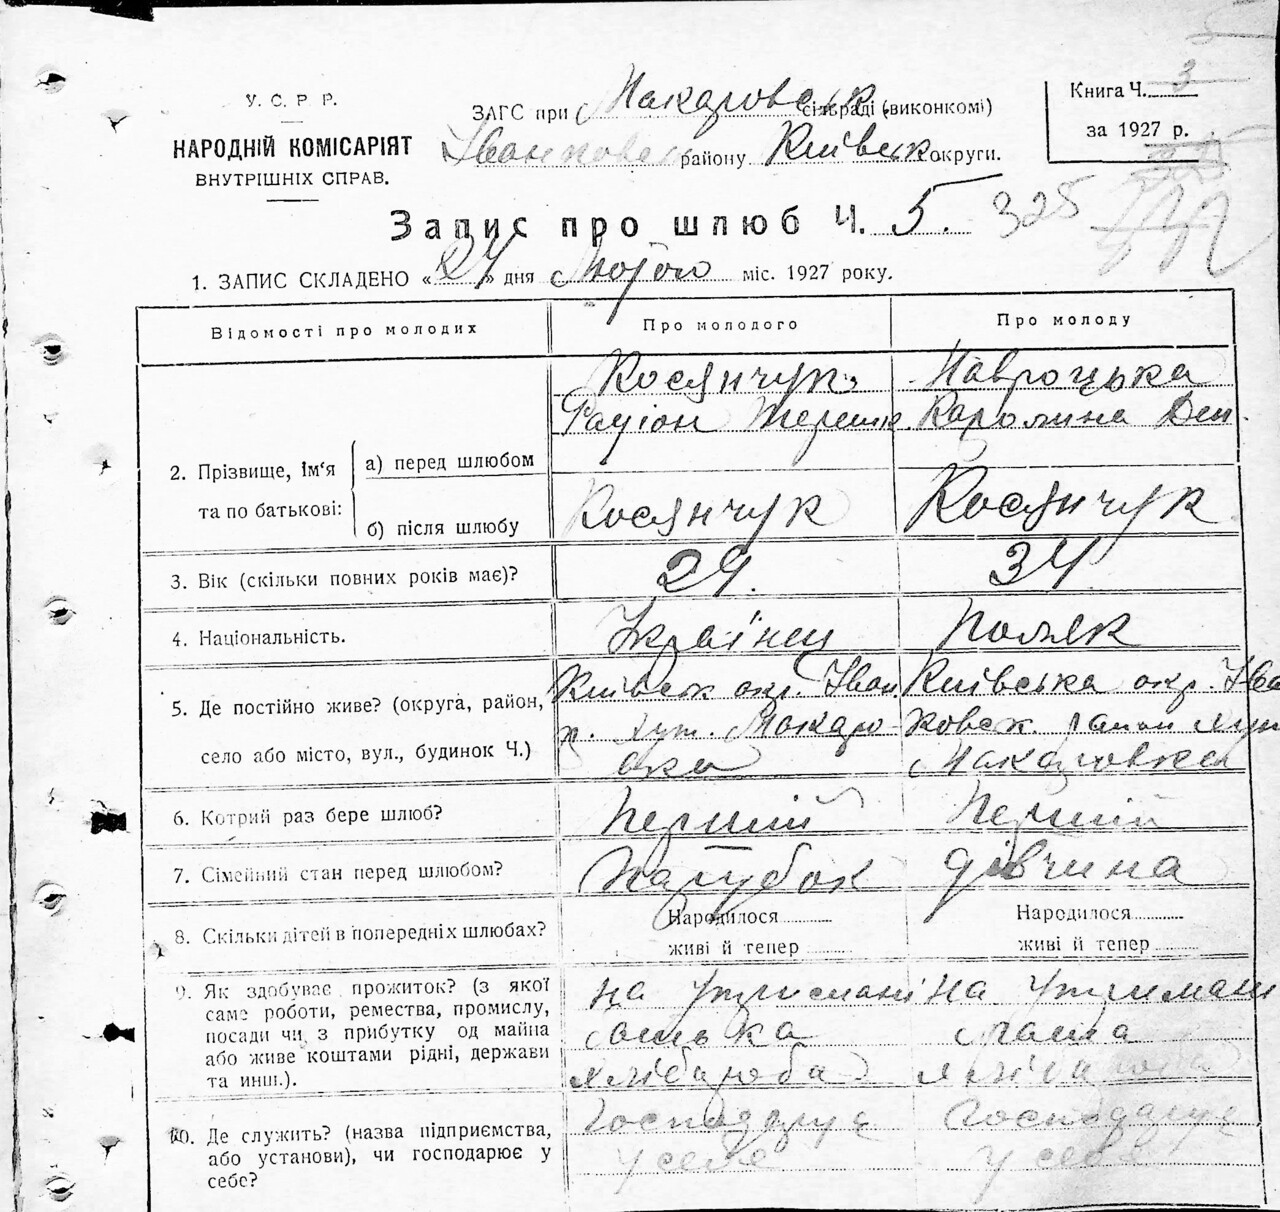 У. С. Р. Р.
НАРОДНІЙ КОМІСАРІЯТ
ВНУТРІШНІХ СПРАВ.
ЗАГС при Макаровськ. сільраді (виконкомі)
Іванковськ району Київськ округи.
Книга Ч. 3
за 1927 р.
Запис про шлюб Ч. 5. 325
1. ЗАПИС СКЛАДЕНО «24» дня Лютого міс. 1927 року.
Відомості про молодих Про молодого Про молоду
2. Прізвище, ім'я та по батькові:
а) перед шлюбом
Косянчук
Навроцька
Каролина Ден.
б) після шлюбу
Косянчук
Косянчук
3. Вік (скільки повних років має)? 24. 34
4. Національність. Українец Поляк
5. Де постійно живе? (округа, район,
село або місто, вул., будинок Ч.)
Київськ окр. Іван
р. хут. Макаро
вка
Київська окр. Іва
ковск. район хут
Макаровка
6. Котрий раз бере шлюб? Перший Перший
7. Сімейний стан перед шлюбом? Парубок дівчина
8. Скільки дітей в попередніх шлюбах?
Народилося
живі й тепер
Народилося
живі й тепер
9. Як здобуває прожиток? (з якої
саме роботи, ремества, промислу,
посади чи з прибутку од майна
або живе коштами рідні, держави
та инш.).
на утримані
батька
хлібароба
на утримані
10. Де служить? (назва підприємства,
або установи), чи господарює у
себе?
Господарує
у себе
Господарує
у себе